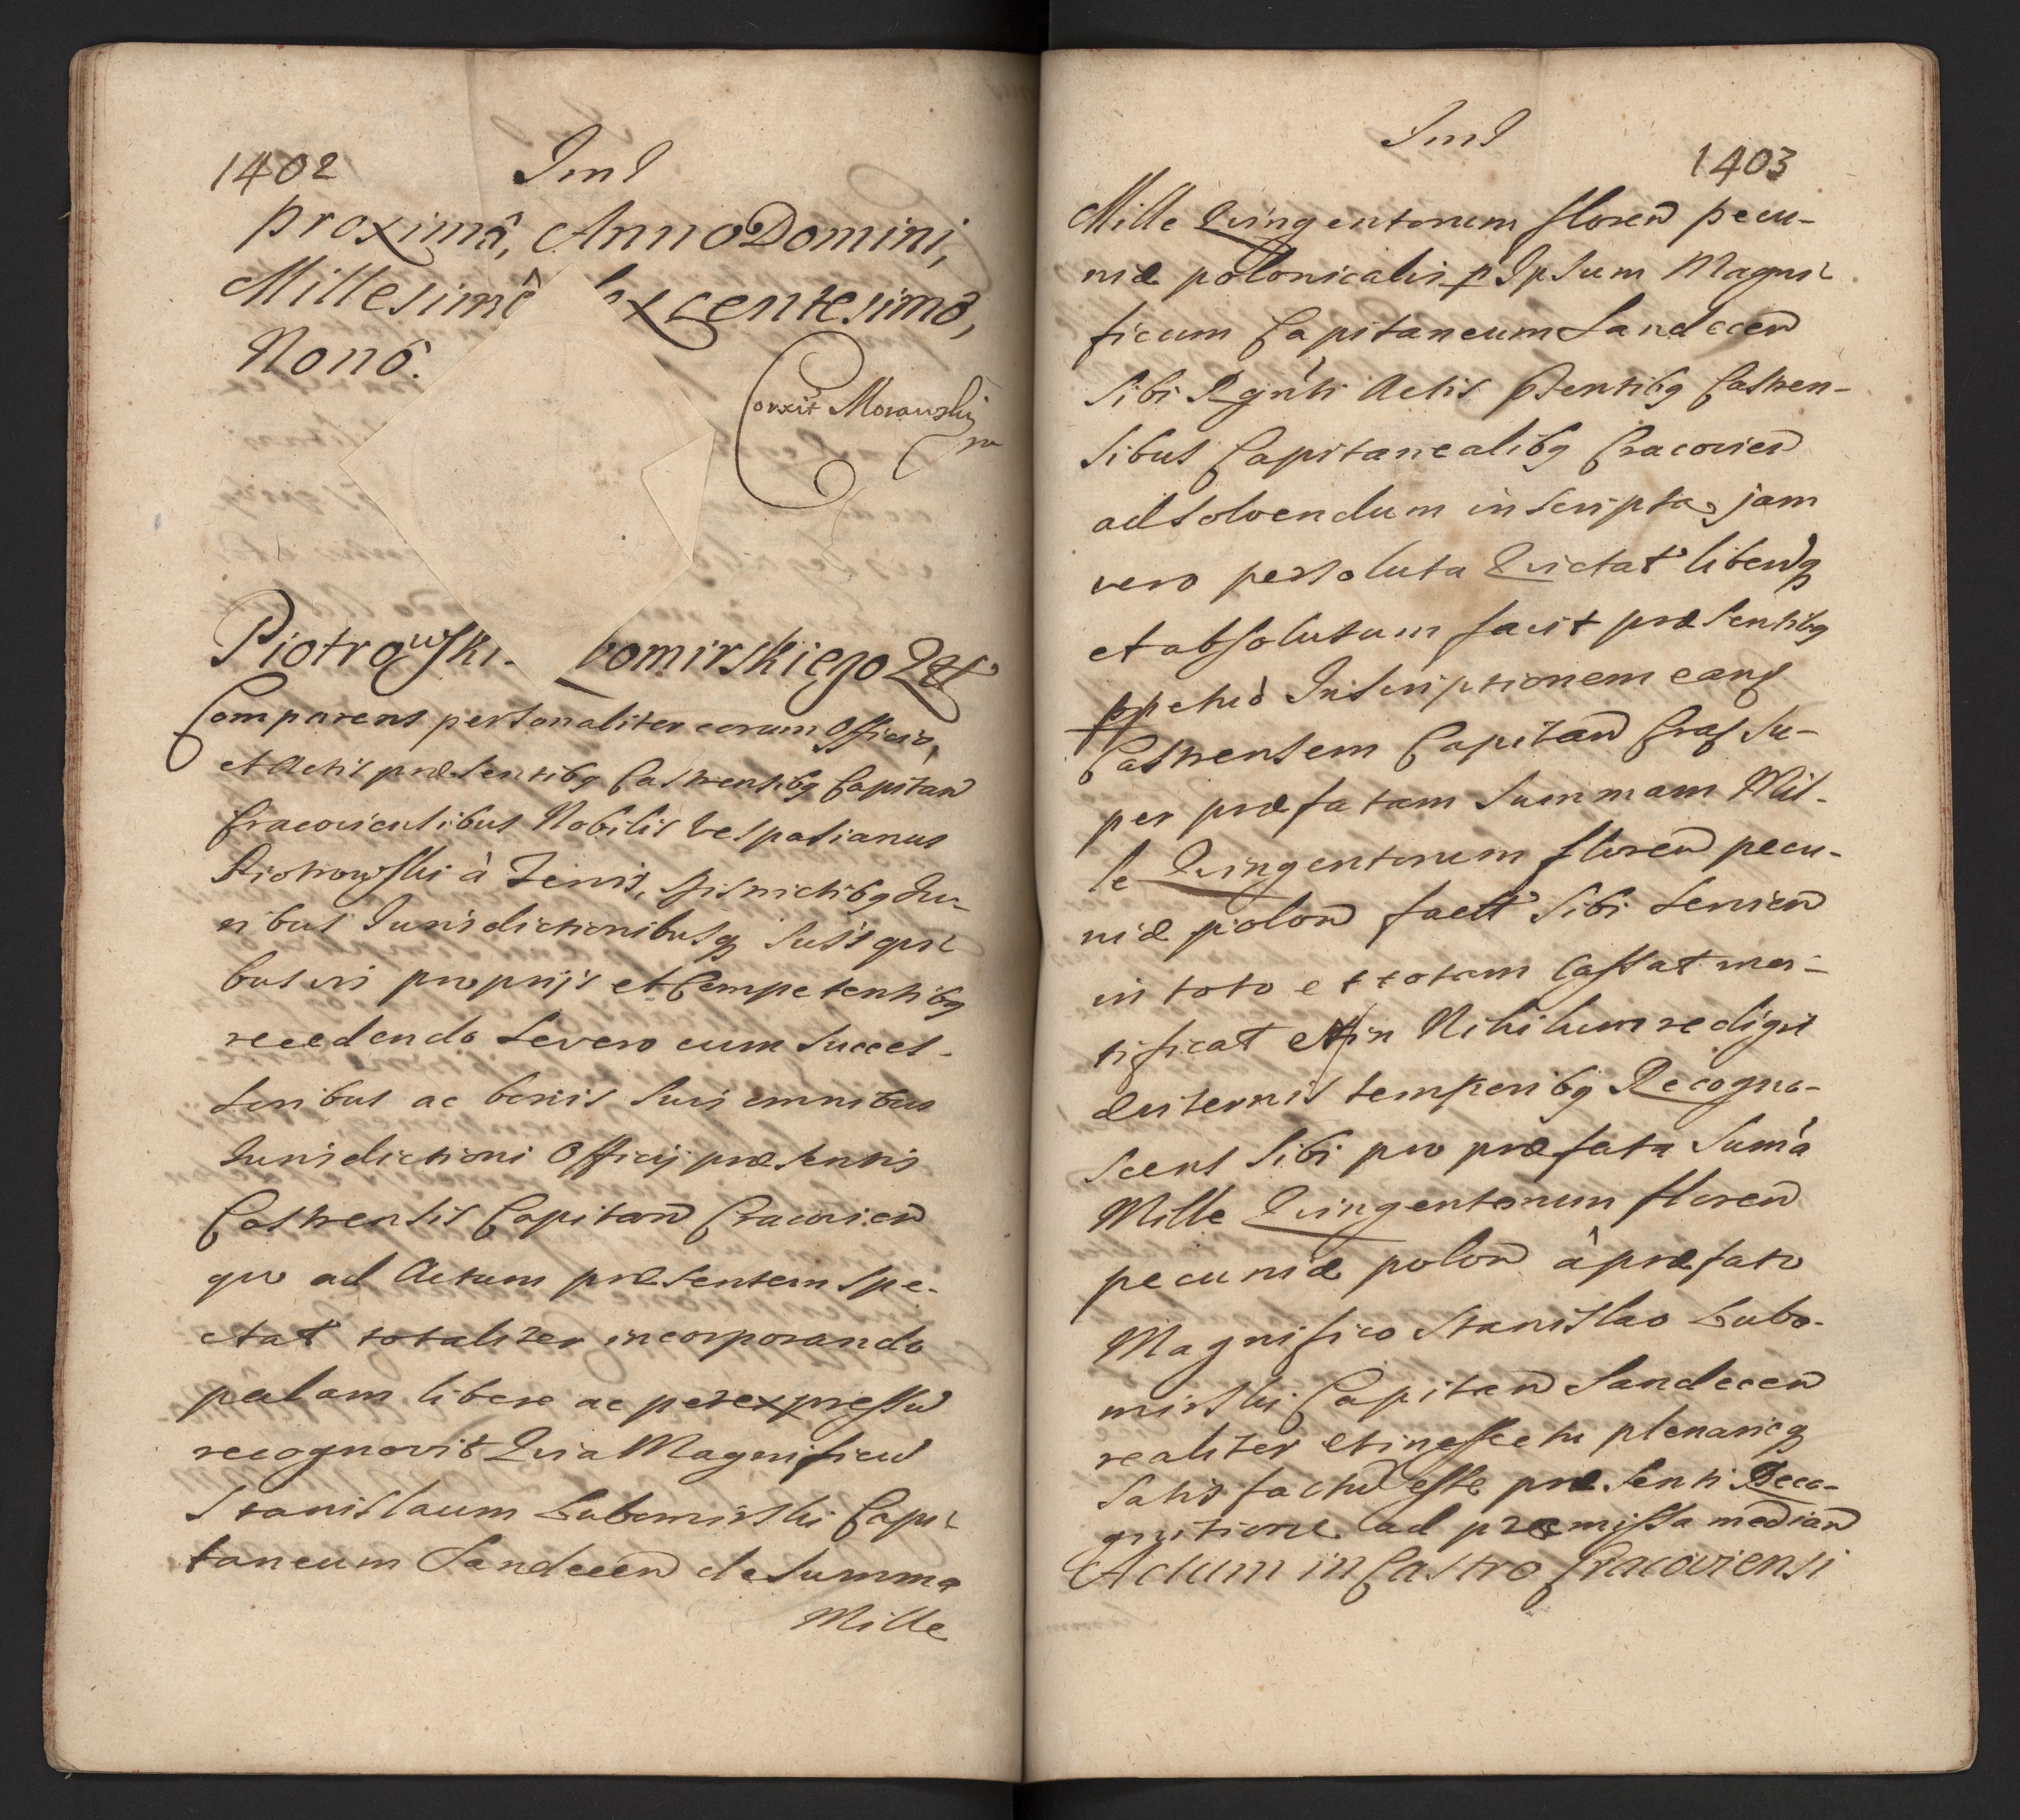 1402
proximâ, Anno Domini,
Millesimô xcentesimô,
Nonô.
Corxit Morawski
Piotrowski bomirskiego
Comparens personaliter coram Officio,
et Actis præsentibq Castrensibq Capitan
Cracoviensibus Nobilis Vespasianus
Piotrowski à Terris, Districtibq Iu-
ribus Iurisdictionibusq suis qui-
busvis proprijs et Competentibq
recedendo se vero cum succes-
soribus ac bonis suis omnibus
Iurisdictioni Officij præsentis
Castrensis Capitan Cracovien
quo ad Actum præsentem spe-
ctat totaliter incorporando
palam libere ac per expressu
recognovit Quia Magnificu
Stanislaum Lubomirski Capi-
taneum Sandecen de Summa
Mille
1403
Mille Quingentorum floren pecu-
niæ polonicalis p Ipsum Magni-
ficum Capitaneum Sandecen
Sibi Actis Castren-
sibus Capitanealibq Cracovien
ad solvendum inscripta, jam
vero persoluta Quietat liberuq
et absolutum facit præsentibq
Inscriptionem eanq
Castrensem Capitan Crac su-
per præfatam Summam Mil-
le Quingentorum floren pecu-
niæ polon factt Sibi servien
in toto et totam Cassat mor-
tificat et in Nihilum redigit
æviternis temporibq Recogno-
scens Sibi pro præfata Suma
Mille Quingentorum floren
pecuniæ polon à præfato
Magnifico Stanislao Lubo-
mirski Capitan Sandecen
realiter et in effectu plenarieq
satisfactu esse præsenti Reco-
gnitione ad præmissa median
Actum in Castro Cracoviensi